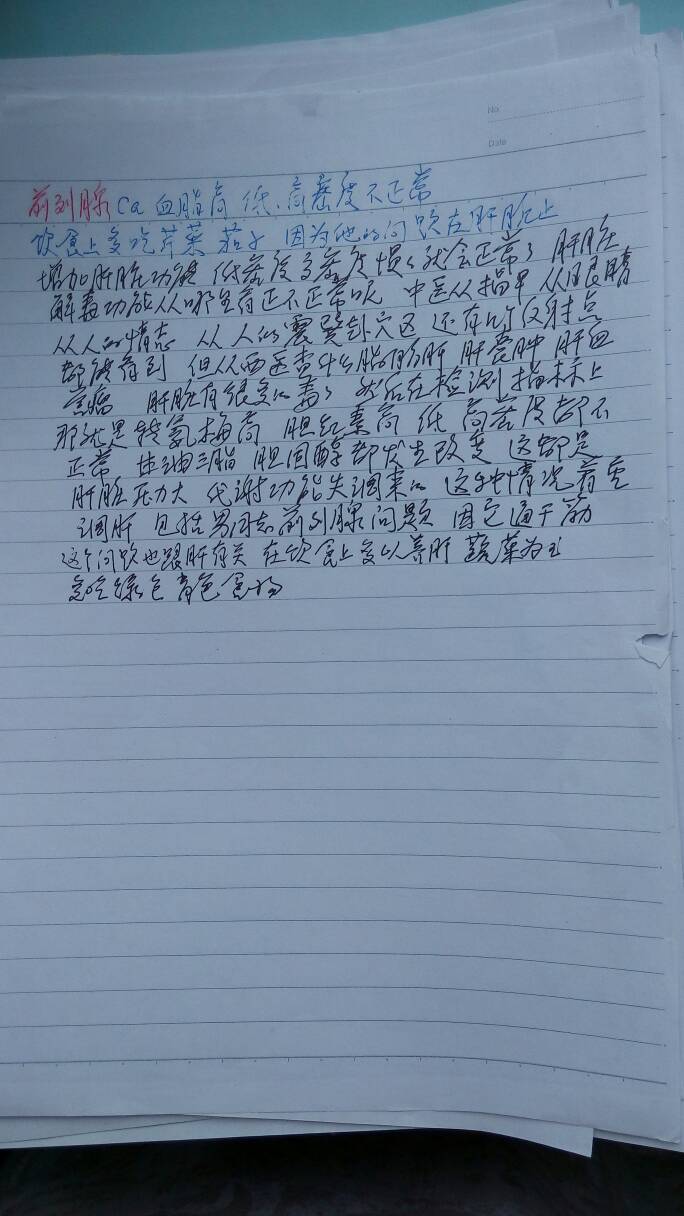 No.
Date
前列腺 Ca 血脂高 低、高密度不正常
饮食上多吃芹菜 茄子 因为他的问题在肝脏上
增加肝脏功能 低密度高密度慢慢就会正常了 肝脏
解毒功能从哪里看正不正常呢 中医从指甲 从眼睛
从人的情态 从人的 穴区 还有 反射点
都能看到 但从西医查什么脂肪肝 肝囊肿 肝血
管瘤 肝脏有很多的毒了 然后在检测指标上
那就是转氨梅高 胆红素高 低 高密度都不
正常 甘油三脂 胆固醇都发生改变 这都是
肝脏压力大 代谢功能失调来的 这种情况看重
调肝 包括男同志前列腺问题 因它通于筋
这个问题也跟肝有关 在饮食上多以养肝 蔬菜为主
多吃绿色 青色食物